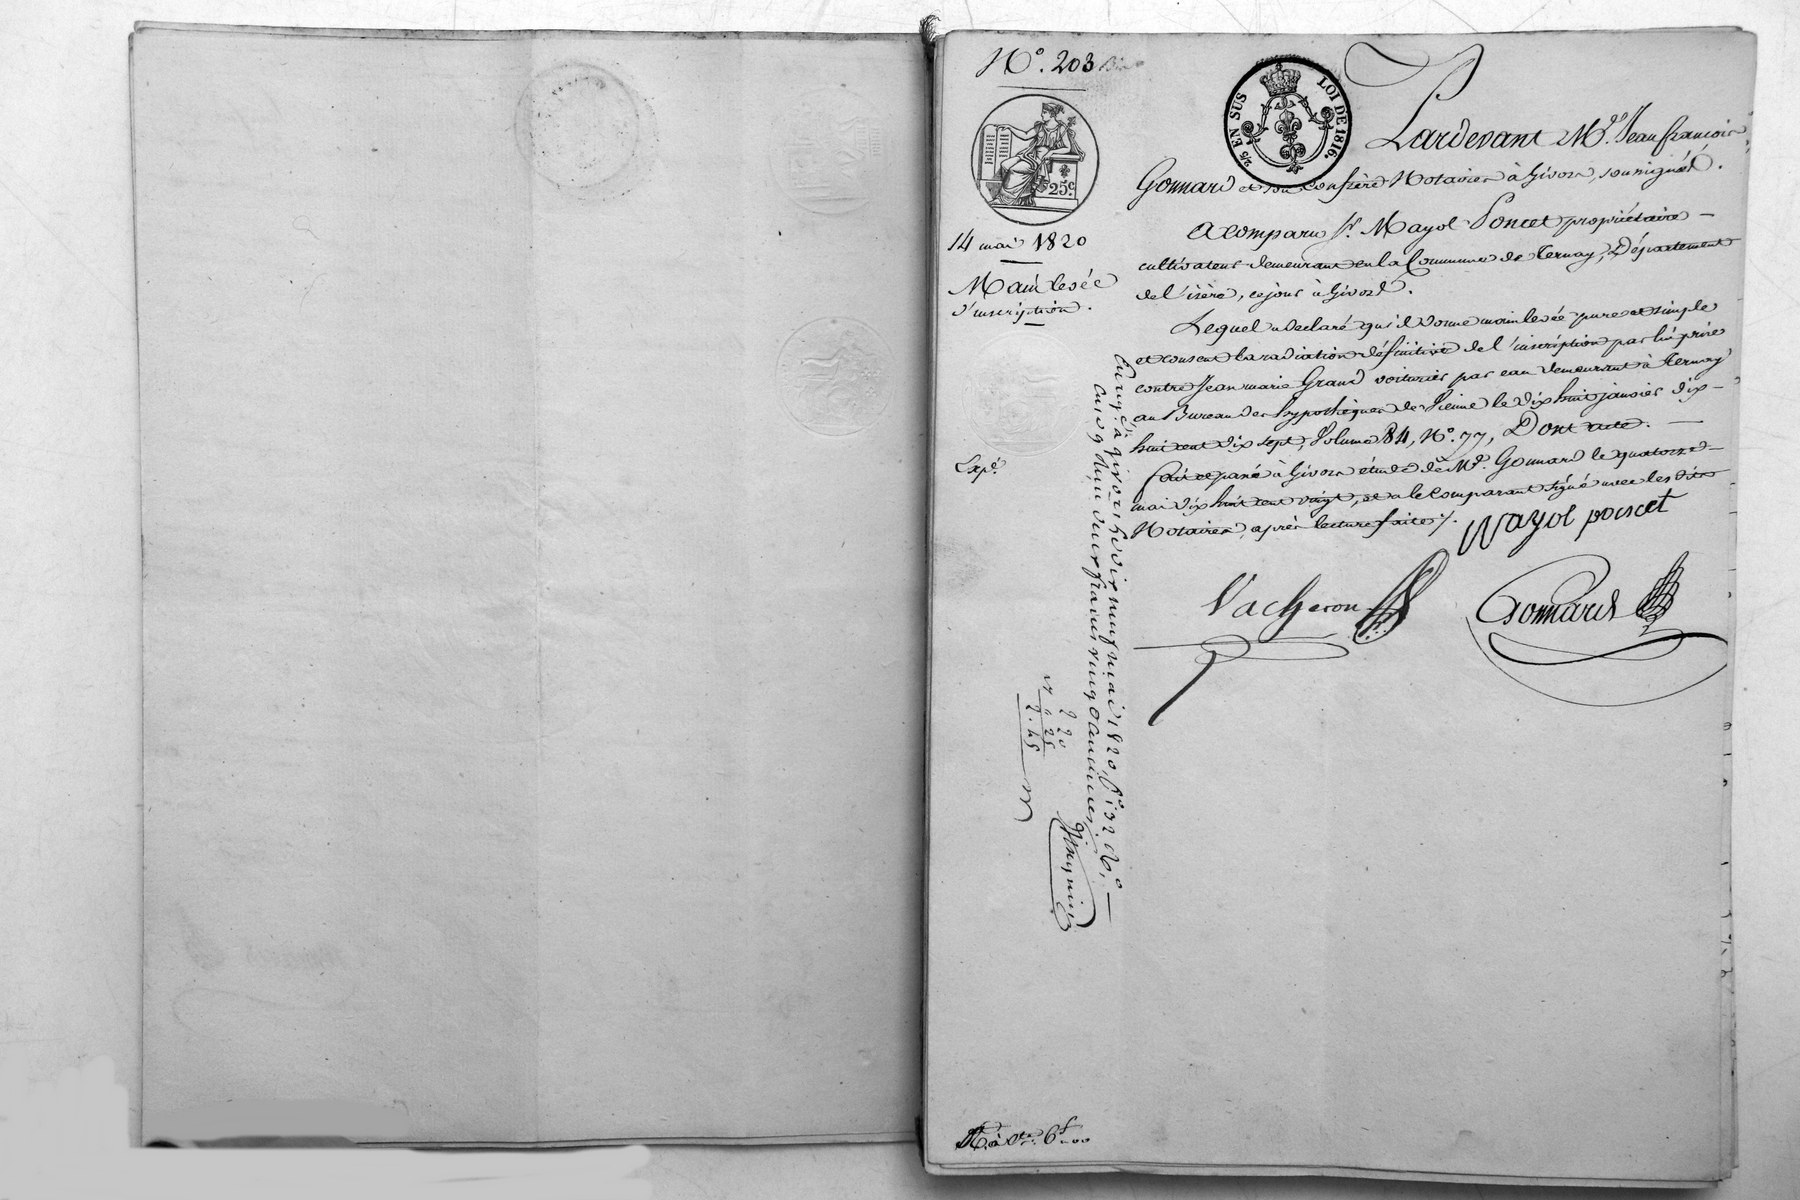 N.° 203 Bis
25.c
2/5 EN SUS LOI DE 1816.
14 mai 1820
Main levée
d'inscription.
Expé.
Pardevant M.e Jean françois
Gonnard et son confrère Notaires à Givors, soussignés.
A comparu s.r Mayol Poncet propriétaire
cultivateur demeurant en la Commune de Ternay, Département
de l'isère, ce jour à Givors.
Lequel a déclaré qu'il donne main levée pure et simple
et consent la radiation définitive de l'inscription par lui prise
contre Jean marie Grand voiturier par eau demeurant à Ternay
au Bureau des hypothèques de Vienne le dix huit janvier dix-
huit cent dix sept, Volume 84, N.° 77, Dont acte.
fait et passé à Givors étude de M.e Gonnard le quatorze
mai dix huit cent vingt, et a le Comparant signé avec les dits
Notaires, après lecture faite./.
Mayol poncet
Vacheron
Gonnard
Enregé à givors le dix neuf mai 1820, f.° 132 v.°
deux francs vingt centimes
2 20
25
2.45
6f